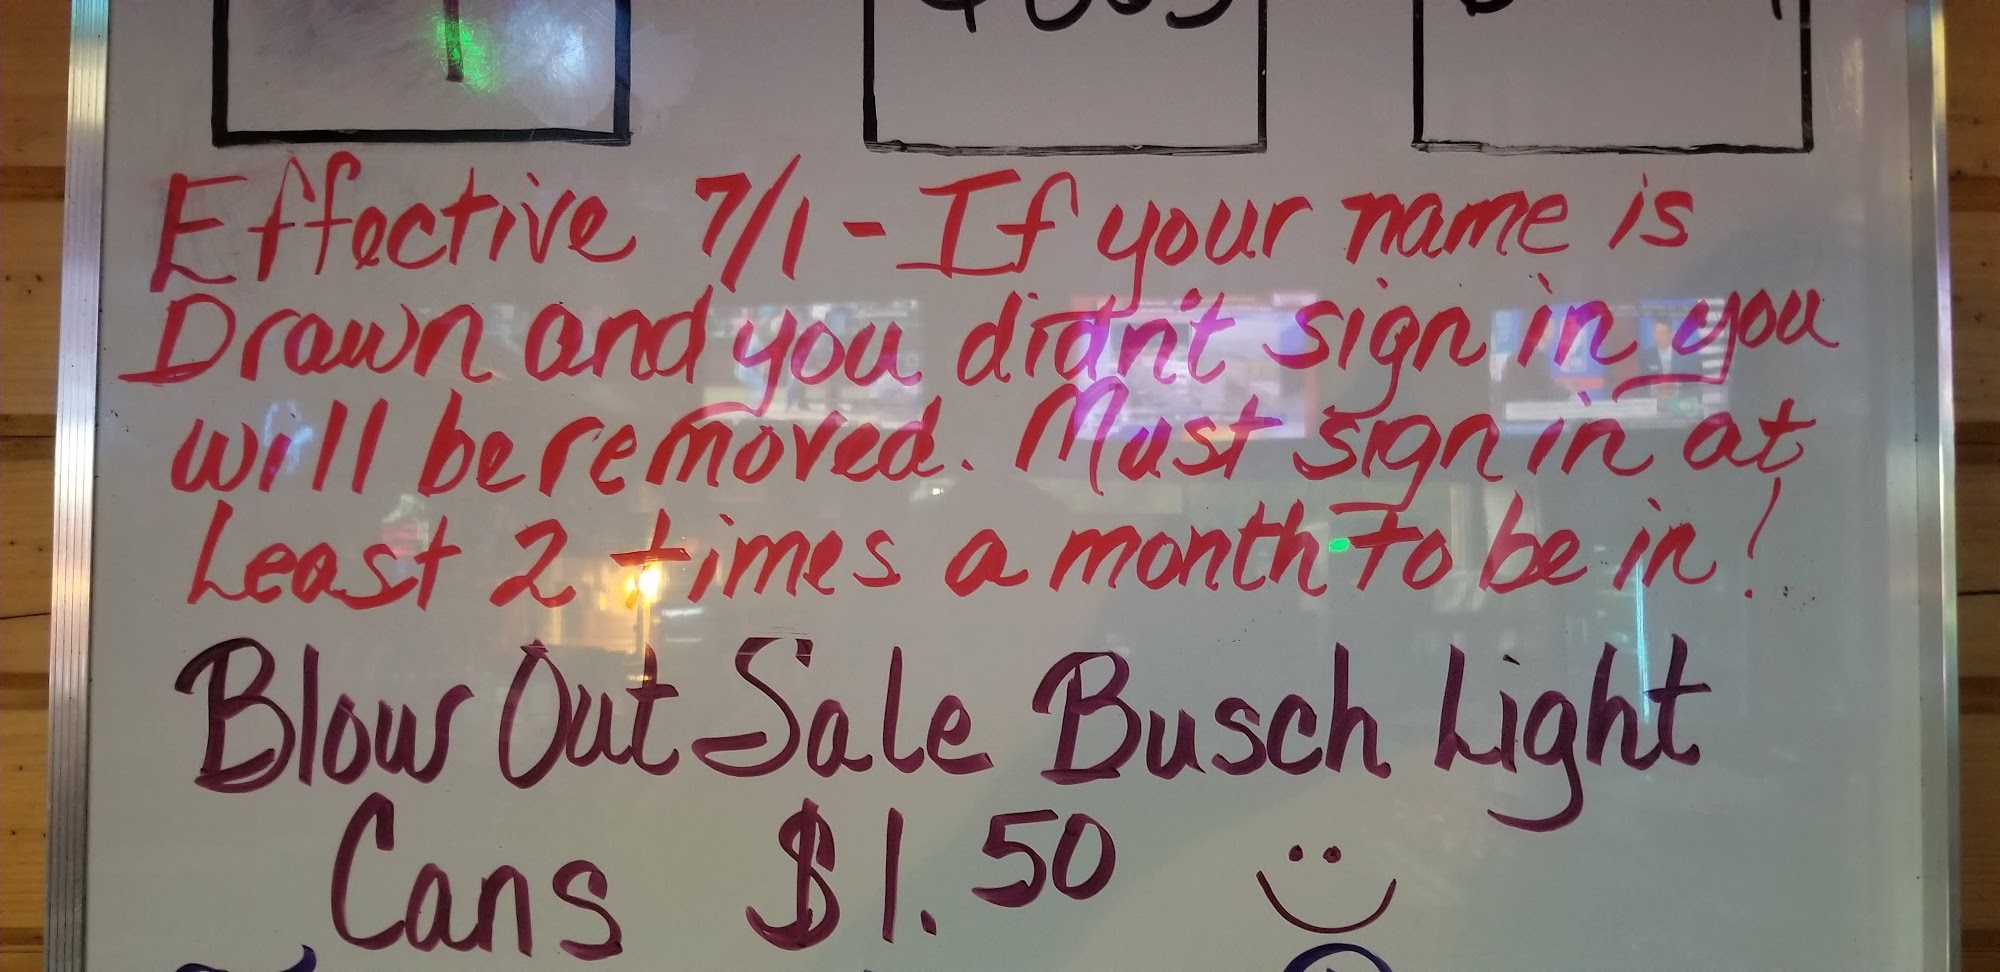 Effective 7/1 - If your name is
Drawn and you didn't sign in you
will be removed. Must sign in at
Least 2 times a month to be in!
Blow Out Sale Busch Light
Cans $1.50